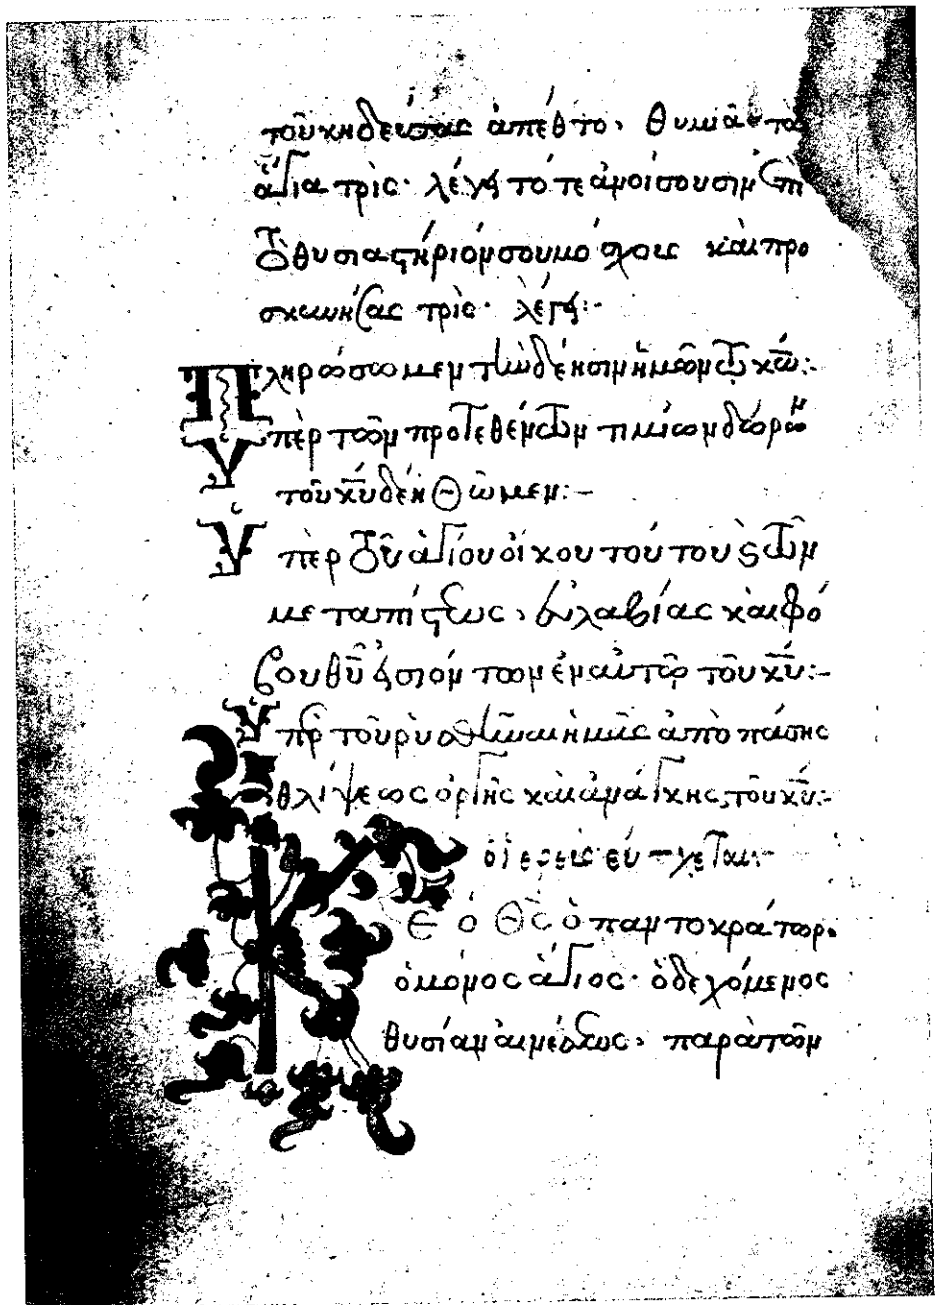 τοῦ κηδεύσας ἀπέθτο, θυμιᾶ τὰ
ἅγια τρίς· λέγει τότε ἀνοίσουσιν ἐπὶ
τὸ θυσιαστήριόν σου μόσχους καὶ προ
σκυνήσας τρίς· λέγει:-
Πληρώσωμεν τὴν δέησιν ἡμῶν τῷ κῶ:-
Ὑπὲρ τῶν προτεθέντων τιμίων δώρων
τοῦ κῦ δεηθῶμεν:-
Ὑπὲρ τοῦ ἁγίου οἴκου τούτου ς τῶν
μετὰ πίστεως, εὐλαβίας καὶ φό
βου θῦ εἰσιόντων ἐν αὐτῷ τοῦ κῦ:-
Ὑπὲρ τοῦ ῥυσθῆναι ἡμᾶς ἀπὸ πάσης
θλίψεως ὀργῆς καὶ ἀνάγκης, τοῦ κῦ:-
ὁ ἱερεὺς εὔχεται:-
Κε ὁ Θς ὁ παντοκράτωρ.
ὁ μόνος ἅγιος· ὁ δεχόμενος
θυσίαν αἰνέσεως, παρὰ τῶν